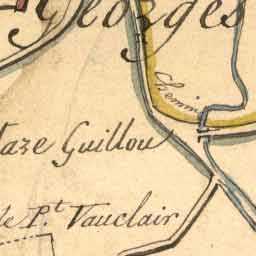 Georges
Chemin
aze Guillou
de P.t Vauclair